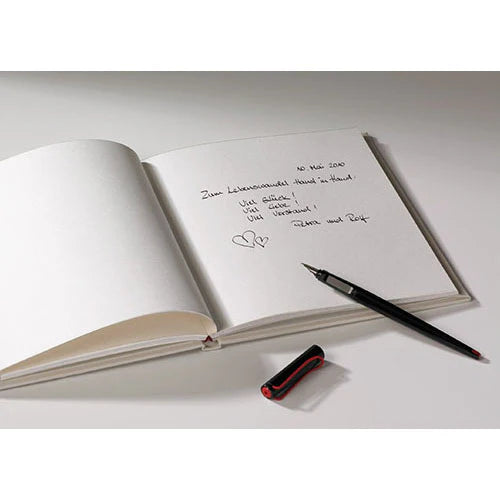 10. Mai 2010
Zum Lebenswandel Hand in Hand:
Viel Glück!
Viel Liebe!
Viel Verstand!
Petra und Rolf